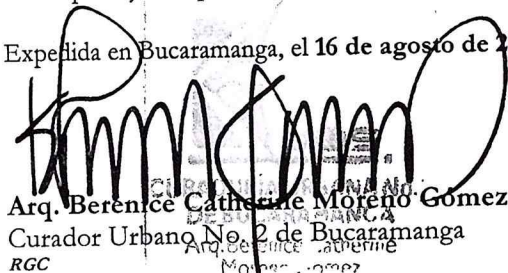 Expedida en Bucaramanga, el 16 de agosto de 2
Arq. Berenice Catherine Moreno Gómez
Curador Urbano No. 2 de Bucaramanga
RGC